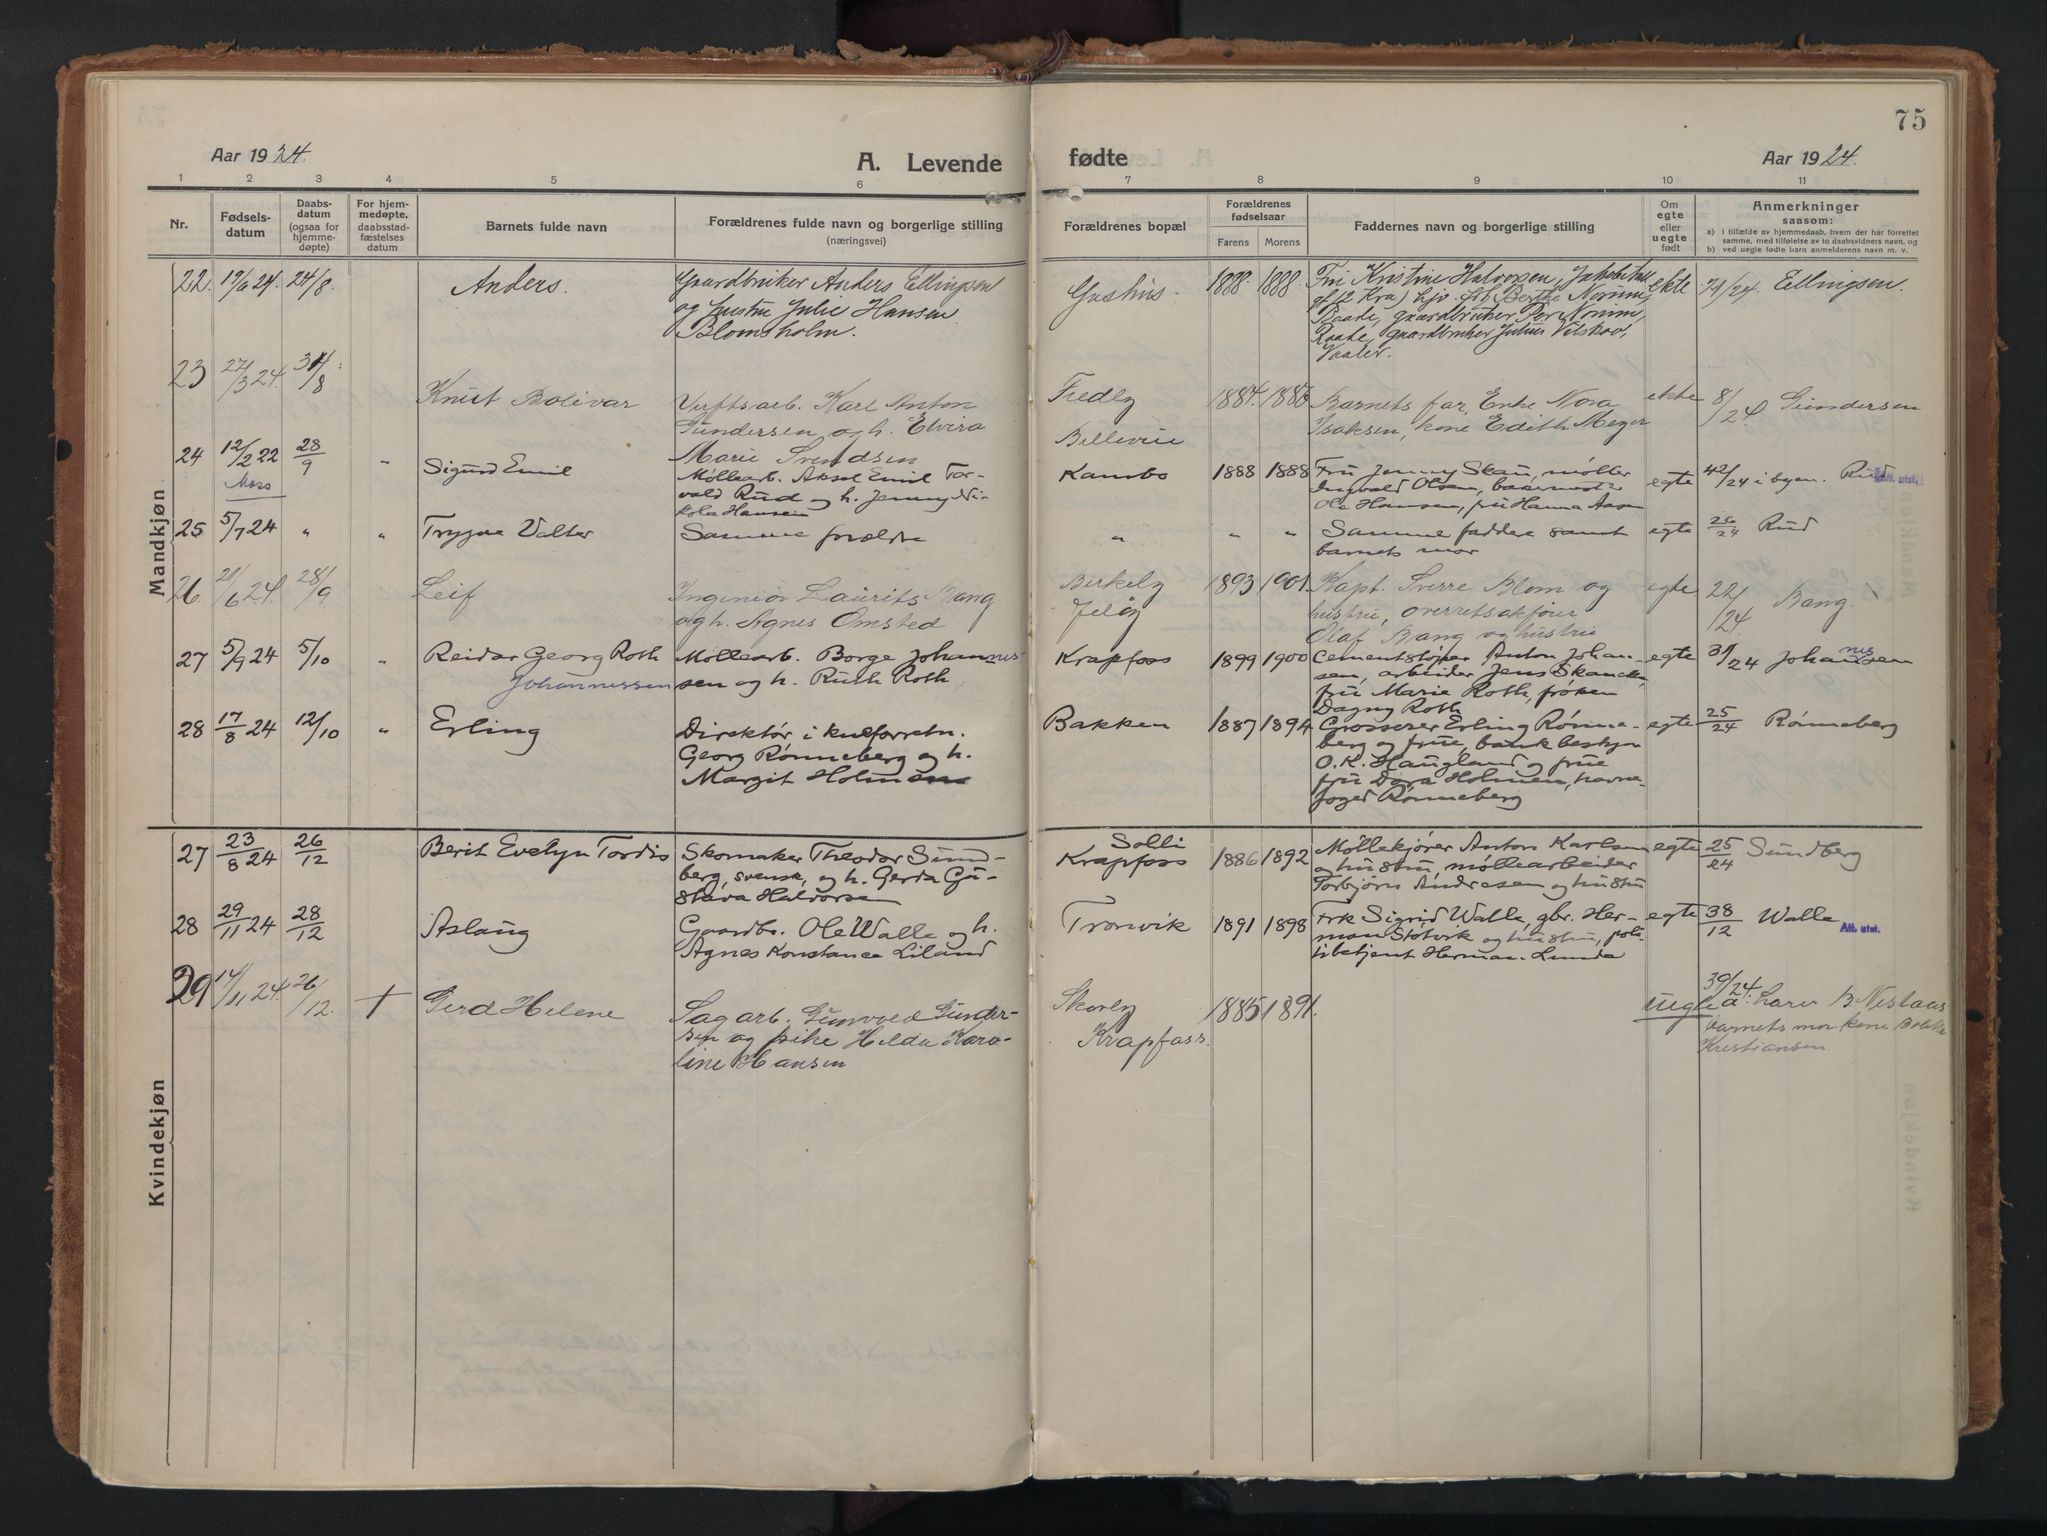 75
Aar 1924.
A. Levende
fødte
Aar 1924.
1 2 3 4 5 6 7 8 9 10 11
Nr.
Fødsels-
datum
Daabs-
datum
(ogsaa for
hjemme-
døpte)
For hjem-
medøpte,
daabsstad-
fæstelses
datum
Barnets fulde navn
Forældrenes fulde navn og borgerlige stilling
(næringsvei)
Forældrenes bopæl
Forældrenes
fødselsaar
Farens Morens
Faddernes navn og borgerlige stilling
Om
egte
eller
uegte
født
Anmerkninger
saasom:
a) I tilfælde av hjemmedaab, hvem der har forrettet
samme, med tilføielse av to daabsvidners navn, og
b) ved uegte fødte barn anmelderens navn m. v.
Mandkjøn
22. 19/6 24. 24/8.
Anders.
Gaardbruker Anders Ellingsen
og hustru Julie Hansen
Blomsholm.
1888. 1888.
Fru Kristine Halvorsen,
Berthe Norum,
Raade, gaardbruker Per Norum,
Raade, gaardbruker Julius Vilskov,
Vaaler.
ekte
24. Ellingsen.
23 27/3 24. 31/8
Knut Bolivar
Verftsarb. Karl Anton
Gundersen og h. Elvira
Marie Svendsen
Fredly
Bellevue
1884. 1886
Barnets far, Enke Nora
Isaksen, kone Edith Meyer
ekte
8/24. Gundersen
24 12/2 22 28/9 "
Moss
Sigurd Emil
Møllearb. Aksel Emil Tor-
vald Rud og h. Jenny Ni-
kola Hansen
Kambo
1888 1888
Fru Jenny Skau, møller
Ingvald Olsen, bakermester
Ole Hansen, fru Hanna Aasen
egte
42/24 i byen. Rud
Att. utst.
25 5/7 24 " "
Trygve Valter
Samme forældre
" " "
Samme faddere samt
barnets mor
egte
26/24 Rud
26. 21/6 24. 28/9
Leif
Ingeniør Laurits Bang
og h. Agnes Omsted
Birkely
Jeløy
1893 1901.
Kapt. Sverre Blom og
hustru, overretssakfører
Olaf Bang og hustru
egte
22/24. Bang.
27 5/9 24 5/10 "
Reidar Georg Roth
Johannessen
Møllearb. Borge Johannes-
sen og h. Ruth Roth
Krapfoss
1899 1900
Cementstøper Anton Johan-
sen, arbeider Jens Skancke,
fru Marie Roth, frøken
Dagny Roth
egte
31/24 Johannessen
28 17/8 24 12/10 "
Erling
Direktør i kulforretn.
Georg Rønneberg og h.
Margit Holmen
Bakken
1887 1894
Grosserer Erling Rønne-
berg og frue, bankbestyr.
O. K. Haugland og frue
fru Dora Holmen, havne-
foged Rønneberg
egte
25/24 Rønneberg
Kvindekjøn
27 23/8 24 26/12
Berit Evelyn Tordis
Skomaker Theodor Sund-
berg, svensk, og h. Gerda Gu-
stava Halvorsen
Solli
Krapfoss
1886 1892
Møllekjører Anton Karlsen
og hustru, møllearbeider
Torbjørn Andresen og hustru
egte
25/24 Sundberg
28 29/11 24 28/12
Aslaug
Gaardbr. Ole Walle og h.
Agnes Konstance Liland
Tronvik
1891 1898
Frk Sigrid Walle, gbr. Her-
man Støtvik og hustru, poli-
tibetjent Herman Lunde
egte
38/12 Walle
Att. utst.
29 14/11 24. 26/12. +
Gerd Helene
Sagarb. Gunvald Gunder-
sen og pike Hilda Karo-
line Hansen
Skorly
Krapfoss.
1885 1891.
uegte
39/24. a.
barnets mor kone
Kristiansen